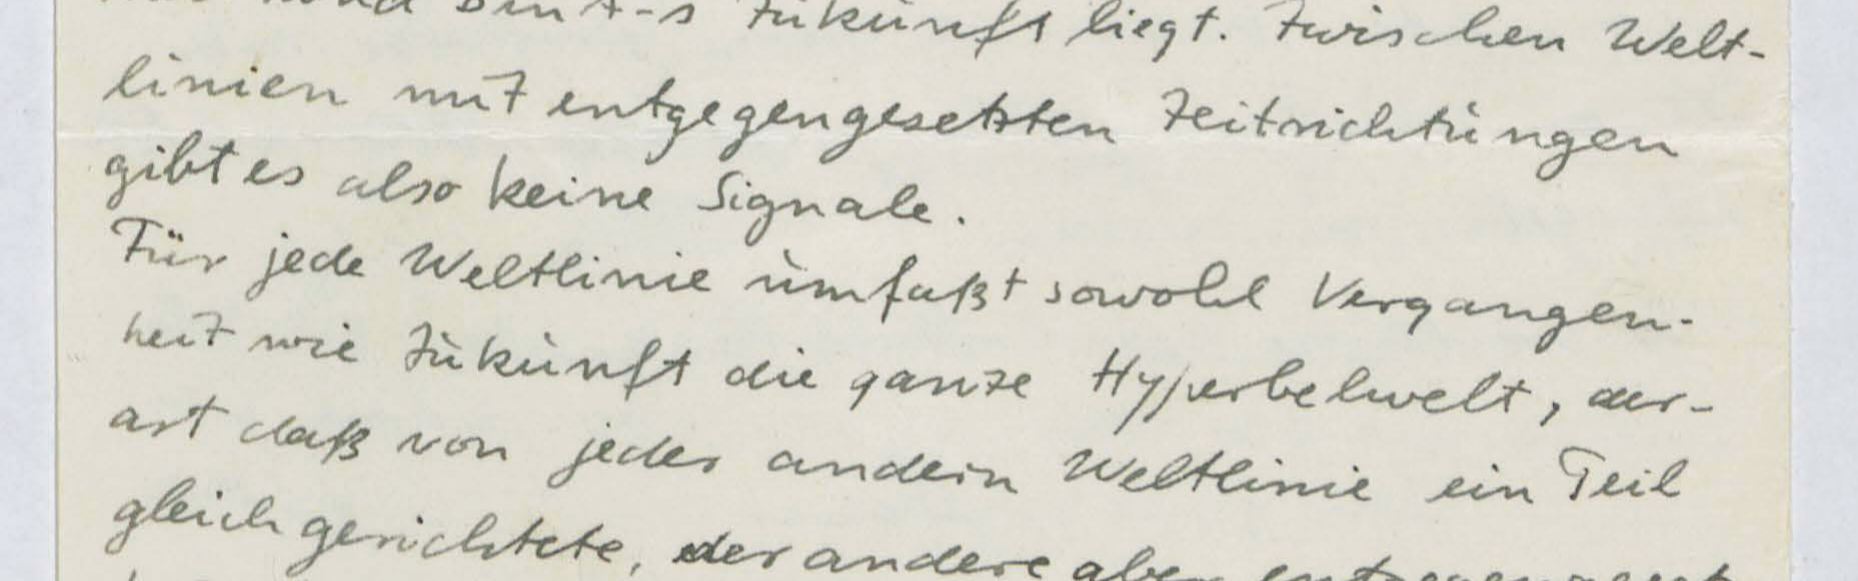 Zukunft liegt. Zwischen Welt-
linien mit entgegengesetzten Zeitrichtungen
gibt es also keine Signale.
Für jede Weltlinie umfaßt sowohl Vergangen-
heit wie Zukunft die ganze Hyperbelwelt, der-
art daß von jeder andern Weltlinie ein Teil
gleich gerichtete, der andere aber